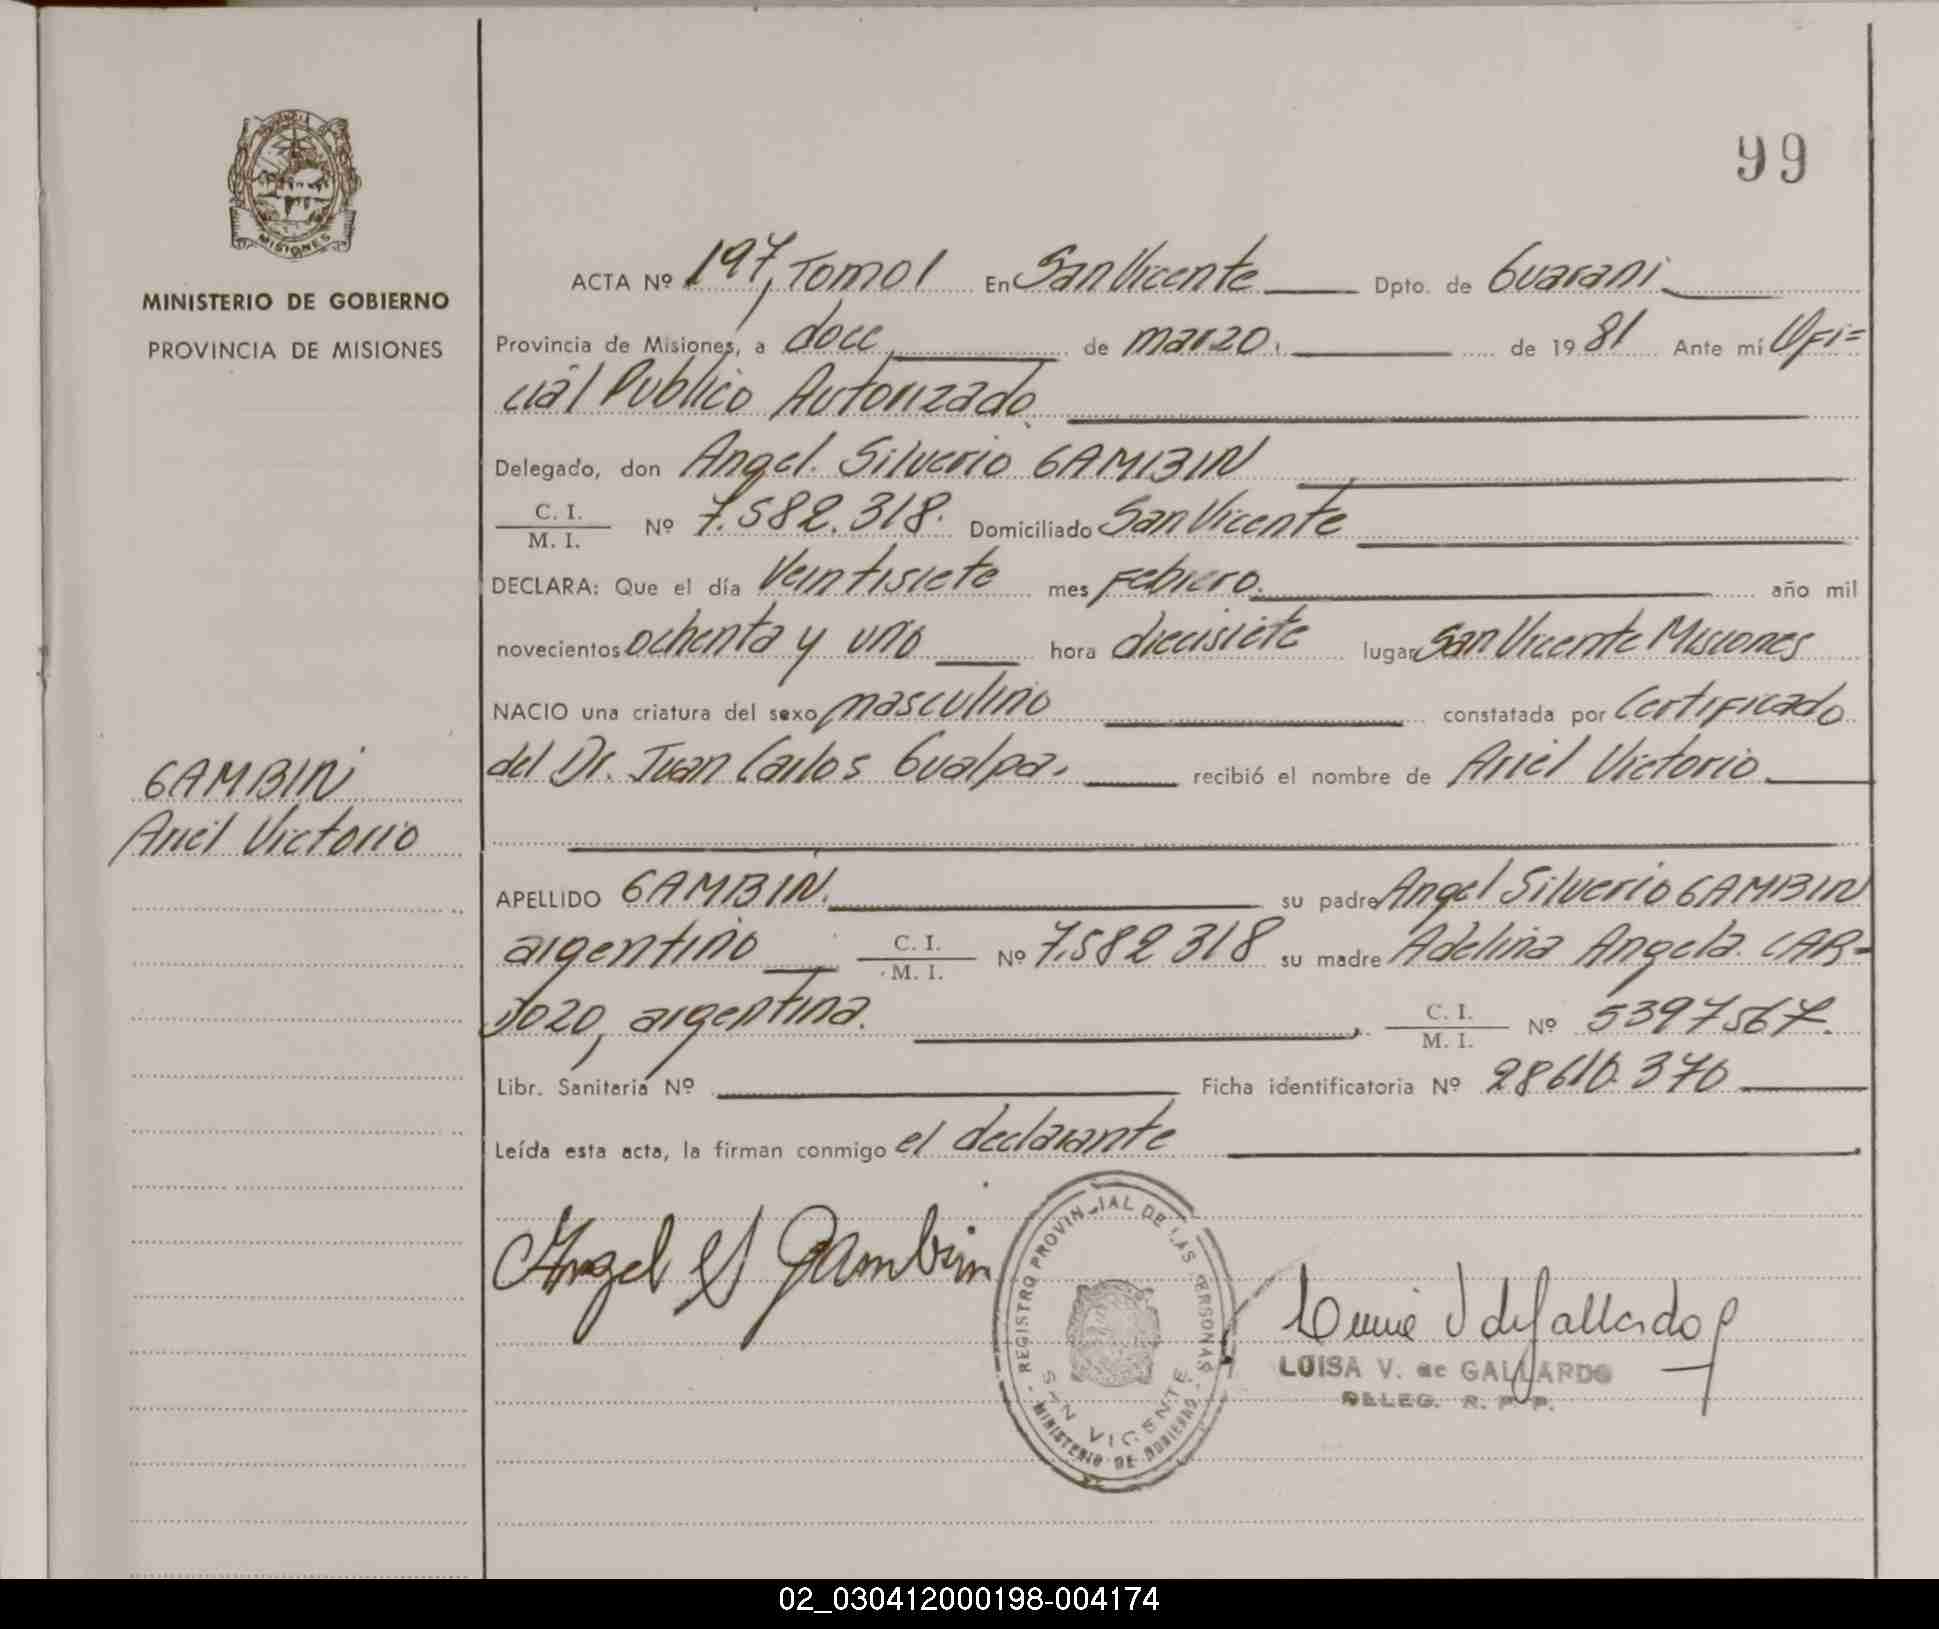 99
MISIONES
MINISTERIO DE GOBIERNO
PROVINCIA DE MISIONES
ACTA Nº 197, Tomo I En San Vicente Dpto. de Guarani
Provincia de Misiones, a doce de marzo. de 1981 Ante mí Ofi=
cial Publico Autorizado
Delegado, don Angel. Silverio GAMBIN
C. I.
M. I. Nº 7.582.318. Domiciliado San Vicente
DECLARA: Que el día Veintisiete mes Febrero. año mil
novecientos ochenta y uno hora diecisiete lugar San Vicente Misiones
NACIO una criatura del sexo masculino constatada por Certificado
del Dr. Juan Carlos Gualpa. recibió el nombre de Ariel Victorio
GAMBIN
Ariel Victorio
APELLIDO GAMBIN. su padre Angel Silverio GAMBIN
argentino C. I.
M. I. Nº 7.582 318 su madre Adelina Angela. CAR=
DOZO, argentina. C. I.
M. I. Nº 5397567.
Libr. Sanitaria Nº Ficha identificatoria Nº 28610.370
Leída esta acta, la firman conmigo el declarante
Angel S Gambin
REGISTRO PROVINCIAL DE LAS PERSONAS
SAN VICENTE
MINISTERIO DE GOBIERNO
LUISA V. de GALLARDO
DELEG. R. P. P.
02_030412000198-004174